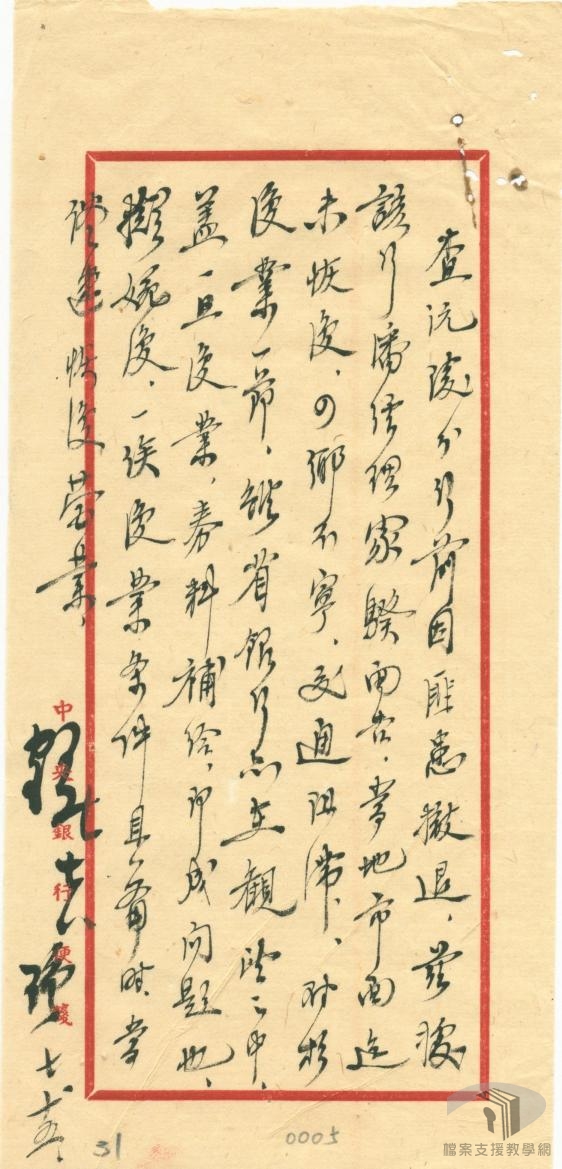 查沅陵分行前因匪患撤退、茲據
該行潘經理家騤面告、當地市面迄
未恢復、四鄉不寧、交通阻滯、對於
復業一節、雖省銀行亦在觀望之中、
蓋一旦復業、券料補給、即成問題也、
擬婉復、一俟復業條件具備時、當
從速恢復營業、
中央銀行便箋
31
0005
檔案支援教學網